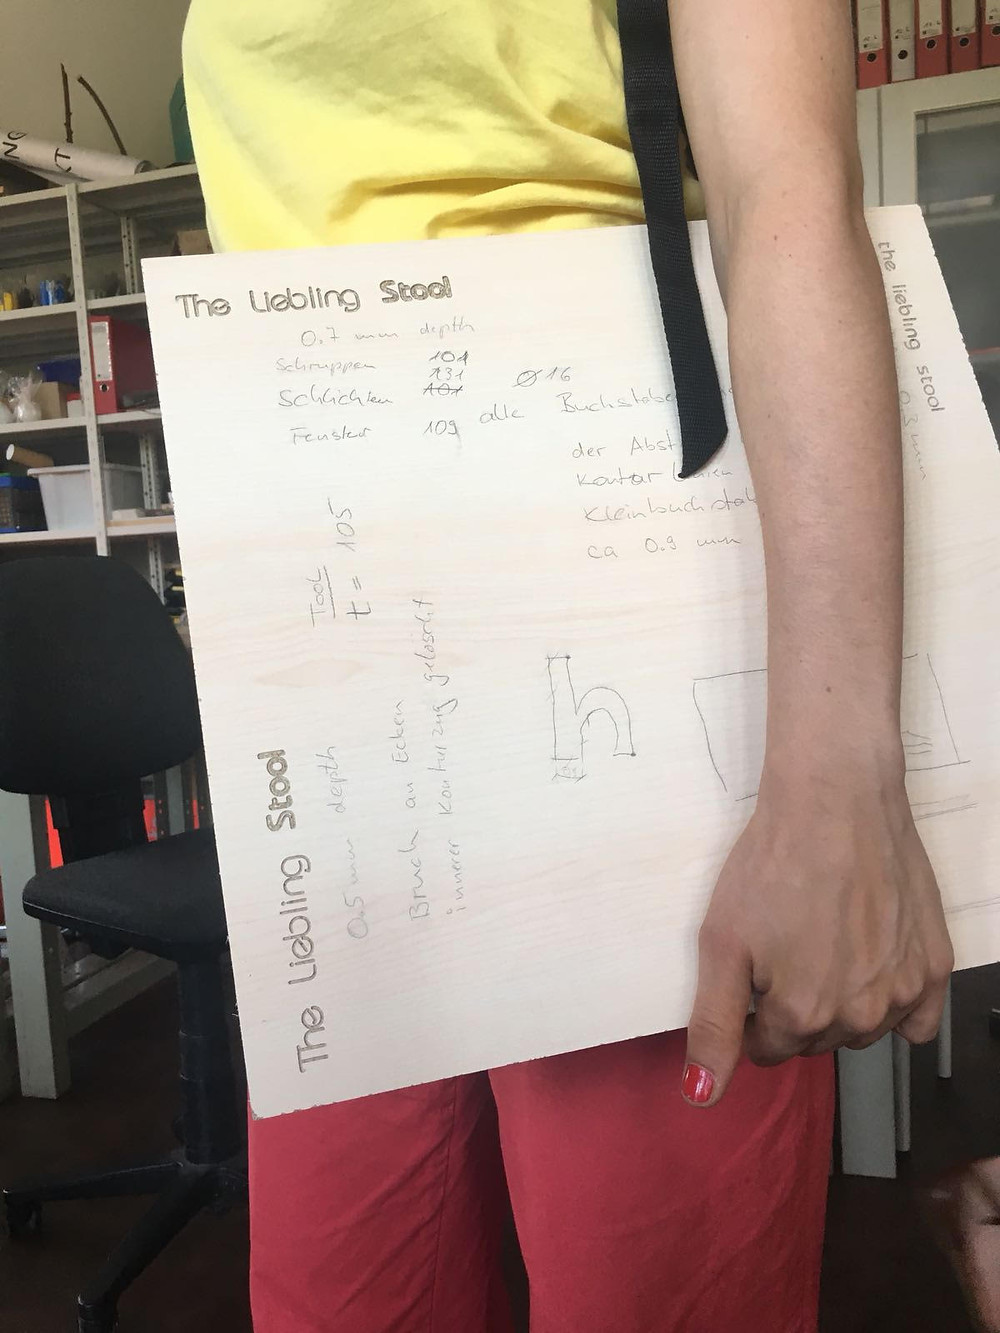 The Liebling Stool
0.7 mm depth
Schruppen 101
131
Schlichten 101
Ø 16
Fenster 109
alle Buchstabe
der Abst
Kontur
Kleinbuchstab
ca 0.9 mm
Tool
t = 105
The Liebling Stool
0.5 mm depth
Bruch an Ecken
innerer Konturzug gelöscht
the liebling stool
0.3 mm